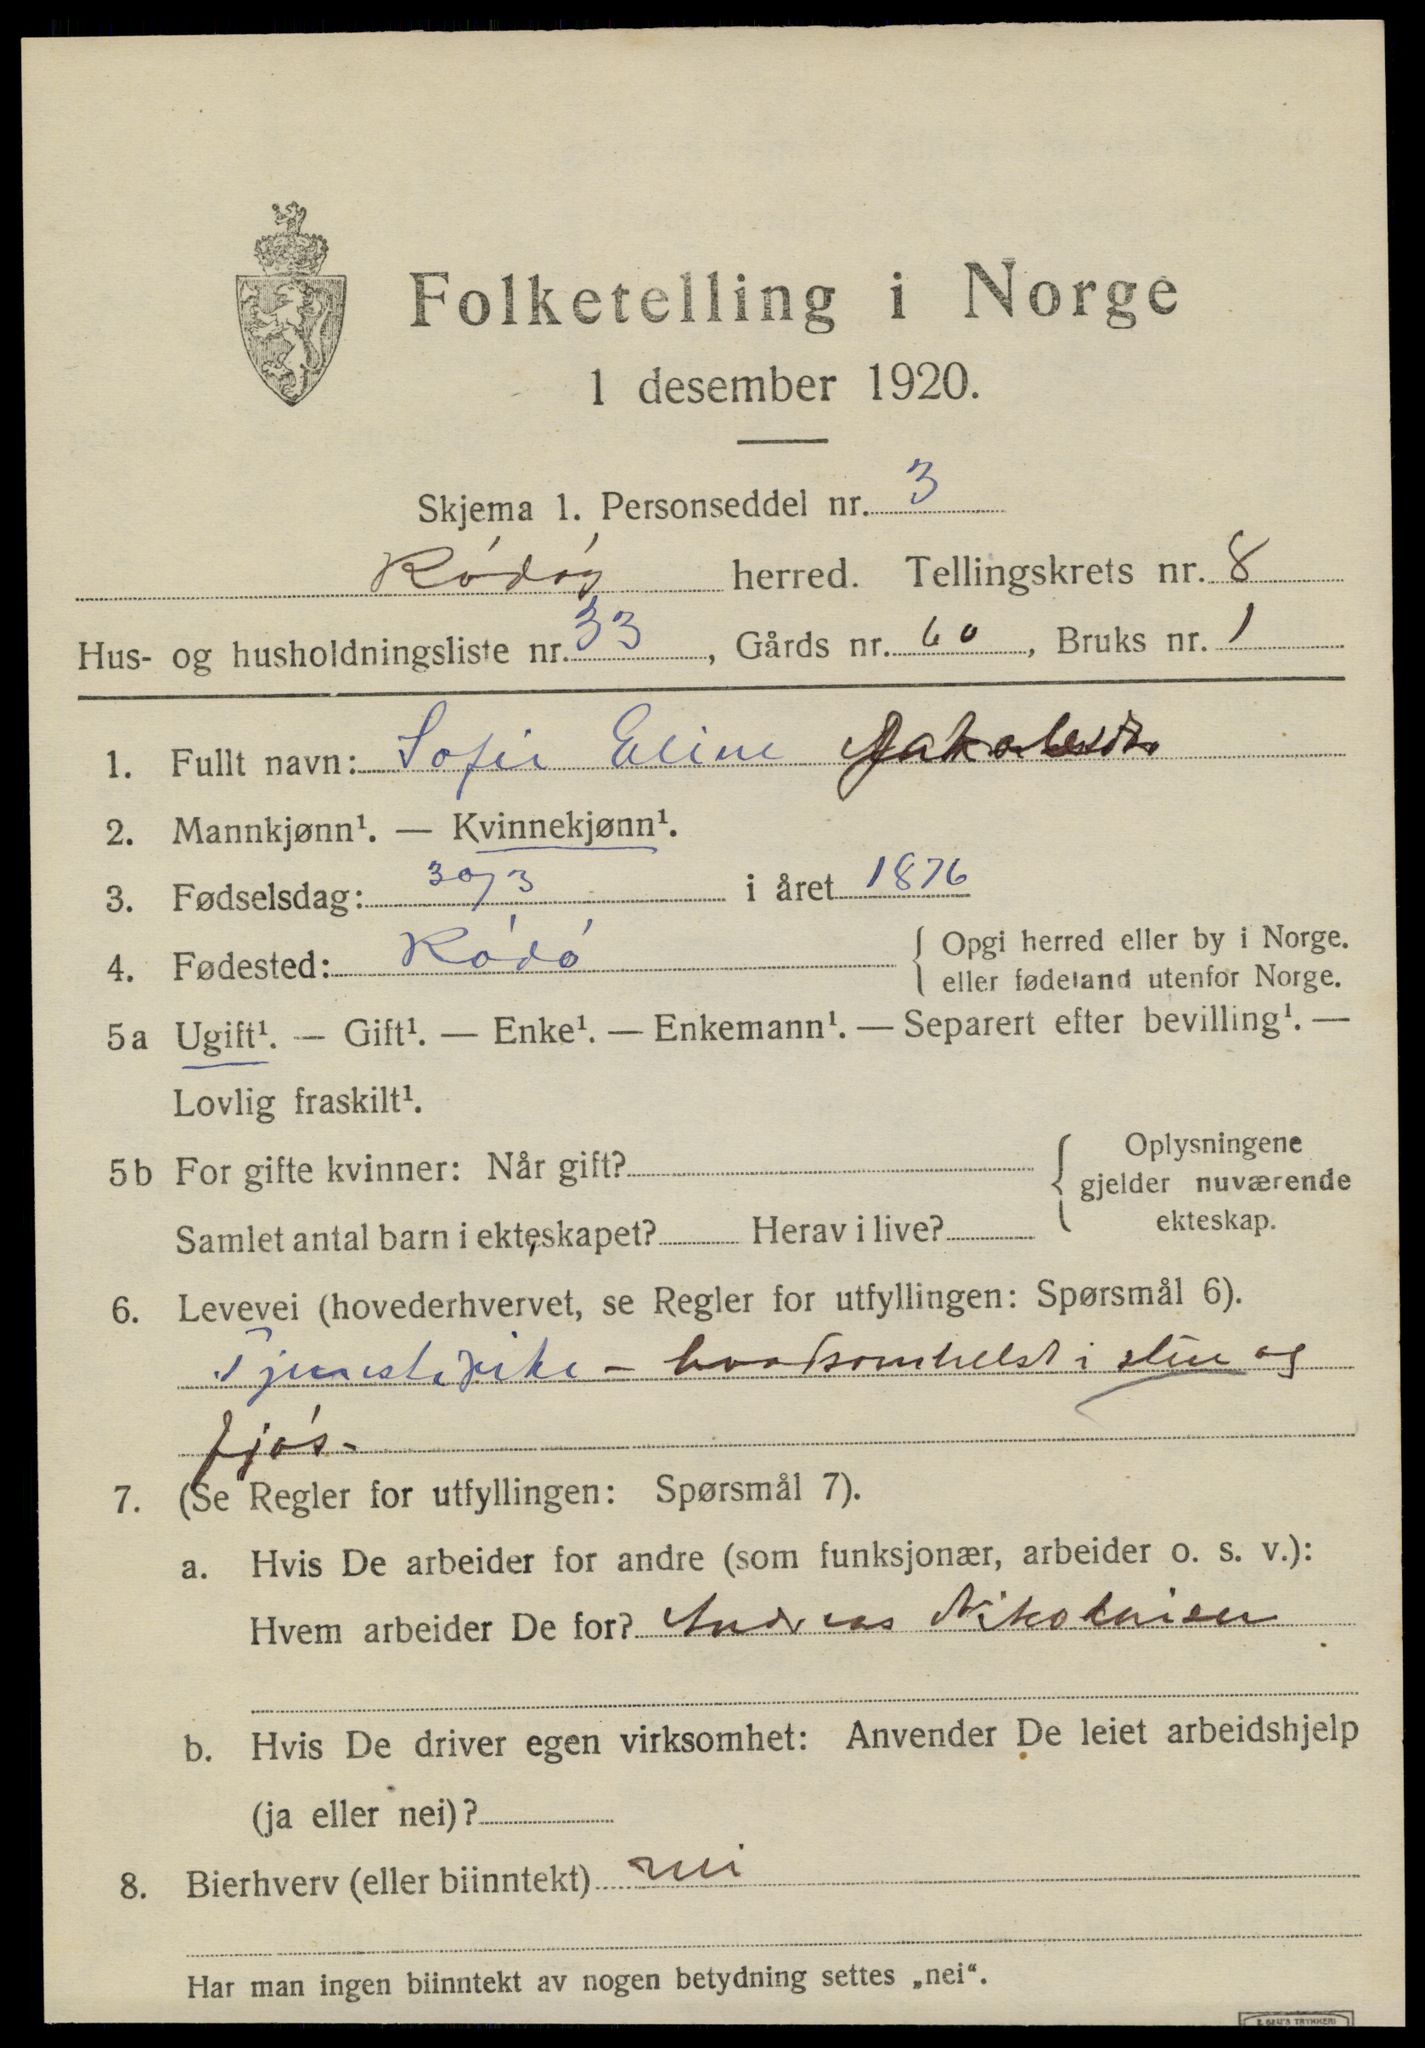 Folketelling i Norge
1 desember 1920.
Skjema 1. Personseddel nr. 3
Rödöy herred. Tellingskrets nr. 8
Hus- og husholdningsliste nr. 33, Gårds nr. 60, Bruks nr. 1
1. Fullt navn: Sofie Eline Jakobsdtr
2. Mannkjønn¹. — Kvinnekjønn¹.
3. Fødselsdag: 30/3 i året 1876
4. Fødested: Rödö { Opgi herred eller by i Norge.
eller fødeland utenfor Norge.
5a Ugift¹. — Gift¹. — Enke¹. — Enkemann¹. — Separert efter bevilling¹. —
Lovlig fraskilt¹.
5b For gifte kvinner: Når gift? { Oplysningene
gjelder nuværende
ekteskap.
Samlet antal barn i ekteskapet? Herav i live?
6. Levevei (hovederhvervet, se Regler for utfyllingen: Spørsmål 6).
Tjenestepike - hvadsomhelst i stue og
fjös -
7. (Se Regler for utfyllingen: Spørsmål 7).
a. Hvis De arbeider for andre (som funksjonær, arbeider o. s. v.):
Hvem arbeider De for? Andreas Nikolaisen
b. Hvis De driver egen virksomhet: Anvender De leiet arbeidshjelp
(ja eller nei)?
8. Bierhverv (eller biinntekt) nei
Har man ingen biinntekt av nogen betydning settes „nei“.